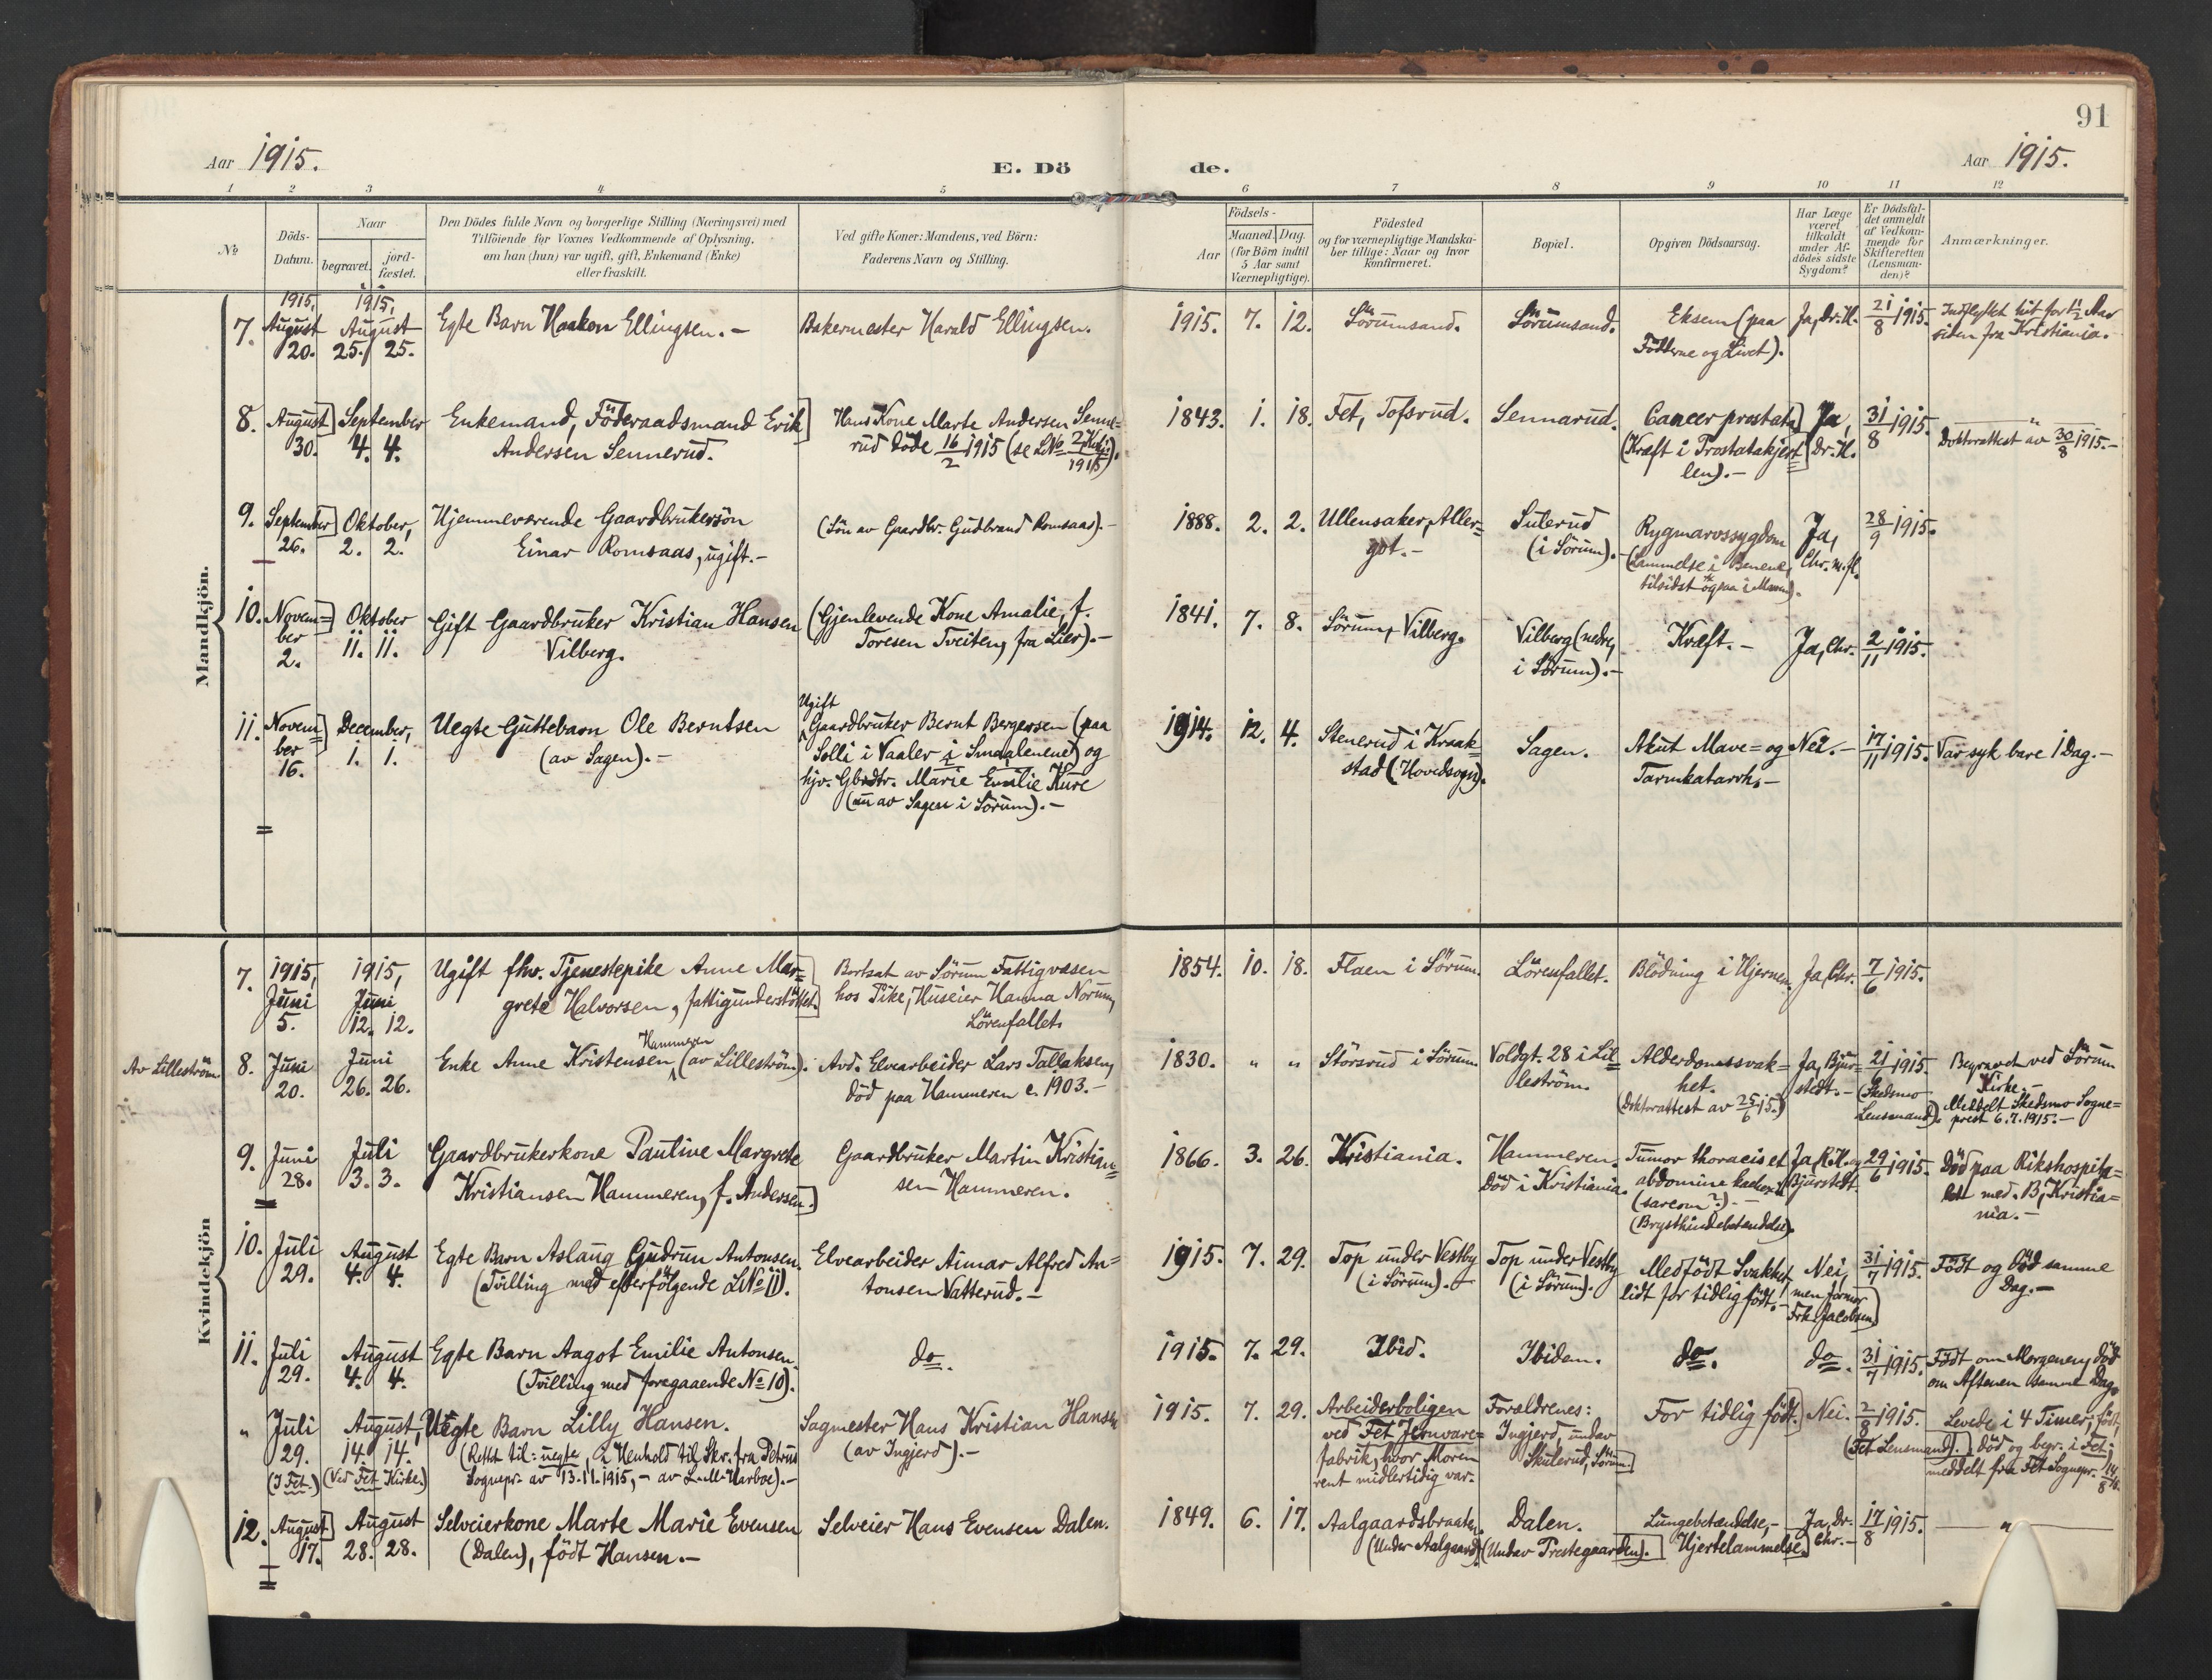 91
Aar 1915.
E. Dö
de.
Aar 1915.
1 2 3 4 5 6 7 8 9 10 11 12
No
Döds-
Datum.
Naar
begravet.
jord-
fæstet.
Den Dödes fulde Navn og borgerlige Stilling (Næringsvei) med
Tilföiende for Voxnes Vedkommende af Oplysning,
om han (hun) var ugift, gift, Enkemand (Enke)
eller fraskilt.
Ved gifte Koner: Mandens, ved Börn:
Faderens Navn og Stilling.
Födsels-
Aar
Maaned.
Dag.
(for Börn indtil
5 Aar samt
Værnepligtige).
Födested
og for værnepligtige Mandska-
ber tillige: Naar og hvor
konfirmeret.
Bopæl.
Opgiven Dödsaarsag.
Har Læge
været
tilkaldt
under Af-
dödes sidste
Sygdom?
Er Dödsfal-
det anmeldt
af Vedkom-
mende for
Skifteretten
(Lensman-
den)?
Anmærkninger.
Mandkjön.
7.
1915,
August
20.
1915,
August
25. 25.
Egte Barn Haakon Ellingsen. -
Bakermester Harald Ellingsen.
1915. 7. 12.
Sörumsand.
Sörumsand.
Eksem (paa
Födderne og Livet).
Ja, Dr. H.
21/8 1915.
Indflyttet hit for 1/2 Aar
siden fra Kristiania. -
8.
August
30.
September
4. 4.
Enkemand, Föderaadsmand Erik
Andersen Sennerud.
Hans Kone Marte Andersen Senne-
rud döde 16/2 1915 (se LNo 2 Kvkj. 1915).
1843. 1. 18.
Fet, Tofsrud.
Sennarud.
Cancer prostata
(Kræft i Prostatakjert-
len). -
Ja,
Dr. H.
31/8 1915.
"
Doktorattest av 30/8 1915. -
9.
September
26.
Oktober,
2. 2.
Hjemmeværende Gaardbrukersön
Einar Romsaas, ugift. -
(Sön av Gaardbr. Gudbrand Romsaas). -
1888. 2. 2.
Ullensaker, Aller-
got. -
Sulerud
(i Sörum). -
Rygmarvssygdom
(Lammelse i Benene,
tilsidst ogsaa i Maven).
Ja,
Chr. m. fl.
28/9 1915.
10.
Novem-
ber
2.
Oktober
11. 11.
Gift Gaardbruker Kristian Hansen
Vilberg.
(Gjenlevende Kone Amalie, f.
Toresen Tveiten, fra Lier). -
1841. 7. 8.
Sörum, Vilberg.
Vilberg (nedre,
i Sörum). -
Kræft. -
Ja, Chr.
2/11 1915.
11.
Novem-
ber
16.
December,
1. 1.
Uegte Guttebarn Ole Berntsen
(av Sagen). -
Ugift
Gaardbruker Bernt Bergersen (paa
Solli i Vaaler i Smaalenene) og
hjv. Gbrdtr. Marie Emilie Kure
(nu av Sagen i Sörum). -
1914. 12. 4.
Stenerud i Kraak-
stad (Hovedsogn).
Sagen.
Akut Mave- og
Tarmkatarrh. -
Nei. -
17/11 1915.
Var syk bare 1 Dag. -
Kvindekjön
7.
1915,
Juni
5.
1915,
Juni
12. 12.
Ugift fhv. Tjenestepike Anne Mar-
grete Halvorsen, fattigunderstöttet.
Bortsat av Sörum Fattigvæsen
hos Pike, Huseier Hanna Norum,
Lörenfallet.
1854. 10. 18.
Flaen i Sörum.
Lörenfallet.
Blödning i Hjernen.
Ja, Chr.
7/6 1915.
Av Lilleström.
8.
Juni
20.
Juni
26. 26.
Hammeren
Enke Anne Kristensen (av Lilleström).
Avd. Elvearbeider Lars Tallaksen,
död paa Hammeren c. 1903. -
1830. " "
Störsrud i Sörum
Voldgt. 28 i Lil-
leström.
Alderdomssvak-
het.
(Doktorattest av 25/6 15.)
Ja, Bjur-
stedt. -
21/6 1915.
(Skedsmo
Lensmand).
Begravet ved Sörum
Kirke. -
Meddelt Skedsmo Sogne-
prest 6.7.1915. -
9.
Juni
28.
Juli
3. 3.
Gaardbrukerkone Pauline Margrete
Kristiansen Hammeren, f. Andersen.
Gaardbruker Martin Kristian-
sen Hammeren.
1866. 3. 26.
Kristiania.
Hammeren.
Död i Kristiania.
Tumor thoracis et
abdomine
(sarcom?). -
(Brysthindebetændelse).
Ja, R.H. og
Bjurstedt.
29/6 1915.
Död paa Rikshospita-
let med. B, Kristia-
nia. -
10.
Juli
29.
August
4. 4.
Egte Barn Aslaug Gudrun Antonsen.
(Tvilling med efterfölgende LNo 11).
Elvearbeider Aimar Alfred An-
tonsen Vatterud. -
1915. 7. 29.
Top under Vestby
(i Sörum). -
Top under Vestby
(i Sörum).
Medfödt Svakhet,
lidt for tidlig födt. -
Nei,
men Jormor
Frk. Jacobsen
31/7 1915.
Födt og död samme
Dag. -
11.
Juli
29.
August
4. 4.
Egte Barn Aagot Emilie Antonsen.
(Tvilling med foregaaende No 10).
do.
1915. 7. 29.
Ibid.
Ibidem.
do.
do.
31/7 1915.
Födt om Morgenen, död
om Aftenen samme Dag.
"
Juli
29.
(I Fet.)
August,
14. 14.
(Ved Fet Kirke.)
Uegte Barn Lilly Hansen.
(Rettet til: uegte, i Henhold til Skr. fra Petrus
Sognepr. av 13.11.1915, -
Sagmester Hans Kristian Hansen
(av Ingjerd). -
1915. 7. 29.
Arbeiderboligen
ved Fet Jernvare-
fabrik, hvor Moren
rent midlertidig var.
Forældrenes:
Ingjerd, under
Skulerud, Sörum.
For tidlig födt.
Nei.
2/8 1915.
(Fet Lensmand).
Levede i 4 Timer; födt,
död og begr. i Fet;
meddelt fra Fet Sognepr. 14/8 15.
12.
August
17.
August
28. 28.
Selveierkone Marte Marie Evensen
(Dalen), födt Hansen. -
Selveier Hans Evensen Dalen.
1849. 6. 17.
Aalgaardsbraaten
(Under Aalgaard)
Dalen.
(Under Prestegaarden).
Lungebetændelse, -
Hjertelammelse.
Ja, Dr.
Chr. -
17/8 1915.
"